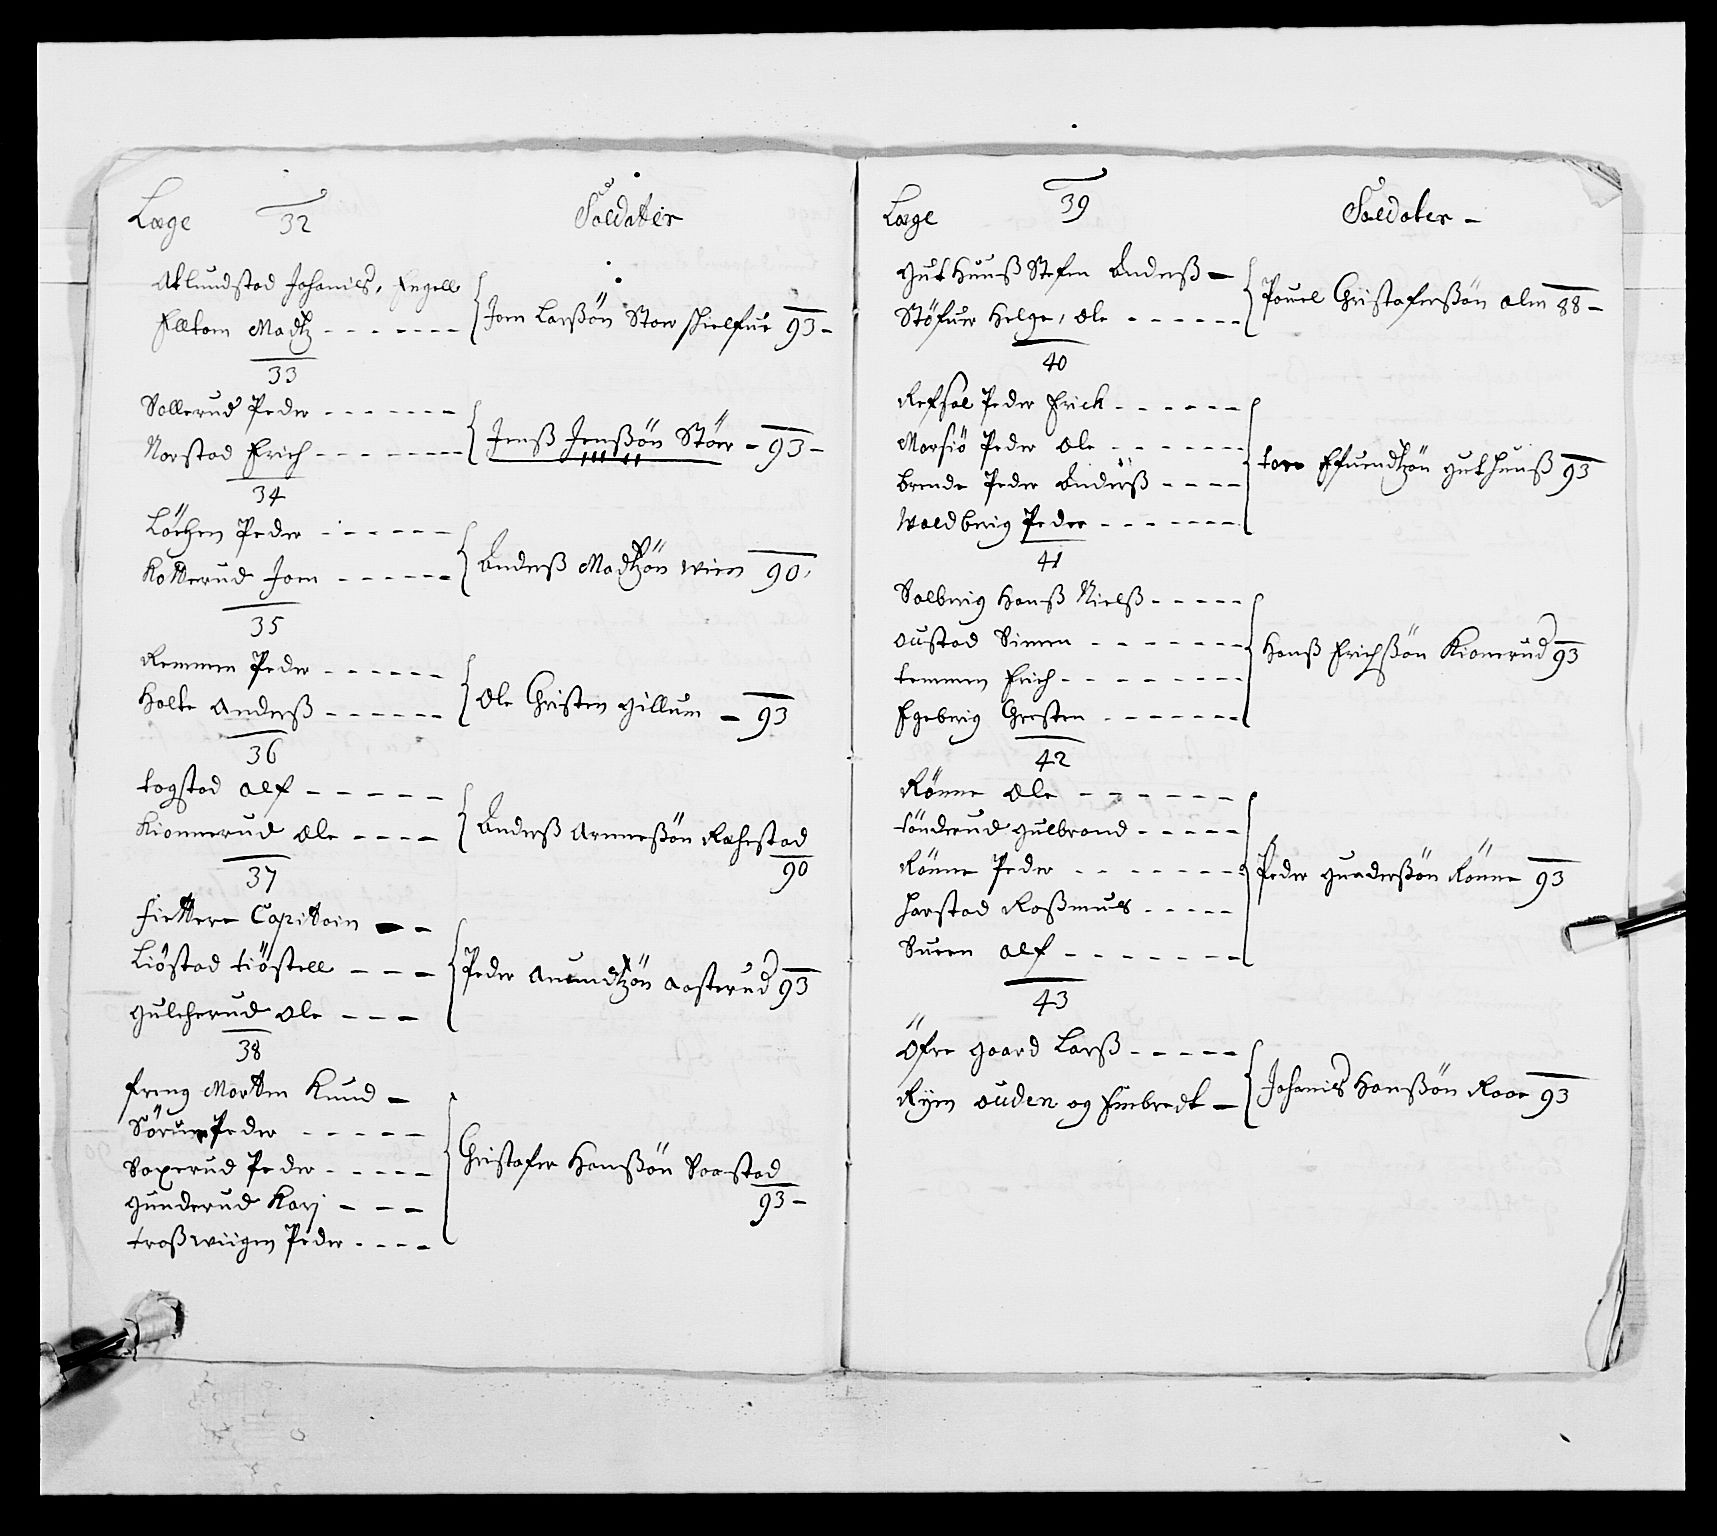 Læge 32 Soldater
Aklundstad Johanis, Engell
Elltom Madtz - - - - - - - Jorn Larßön Stor 93 -
33
Sollerud Peder - - - - - - -
Norstad Erich - - - - - - - Jenß Jenßön Stör - 93 -
34
Löchen Peder - - - - - -
Kotterud Jorn - - - - - - Anderß Madtzön wien 90
35
Remmen Peder - - - - - -
Holte Anderß - - - - - - Ole Christen Hillum - 93
36
togstad Alf - - - - -
Kionnerud Ole - - - - Anderß Arnneßön Rakestad
90
37
fiettere Capittain - -
Liöstad tiöstell - - -
Gulcherud Ole - - - Peder Amundtzön Aasterud 93
38
freng Morten Knud -
Sörum Peder - - - - -
Saxerud Peder - - - - -
Gunderud Karj - - -
troßwiigen Peder - - - - Christofer Hanßön Saastad
93 -
Læge 39 Soldater -
Guthuuß Stefen Anderß -
Stöfuer Helge, Ole - - - - - - Pouel Christoferßön Alm 88 -
40
Refsal Peder Erich - - - - - -
Morsiö Peder Ole - - - - - -
brende Peder Anderß - - - -
Woldberig Peder - - - - - - - tore Efuendtzön Guthuuß 93
41
Solberig Hanß Nielß - - - - -
oustad Simen - - - - - - -
temmen Erich - - - - - - - -
Egeberig Christen - - - - - - - Hanß Erichßön Kionerud 93
42
Rönne Ole - - - - - - -
tönderud Gulbrand - - - - -
Rönne Peder - - - - - - - -
harstad Roßmus - - - - -
Suern Alf - - - - - - - Peder Gunderßön Rönne 93
43
Öfre gaard Larß - - - - -
Ryen ouden og Embredt - Johanis Hanßön Roos 93